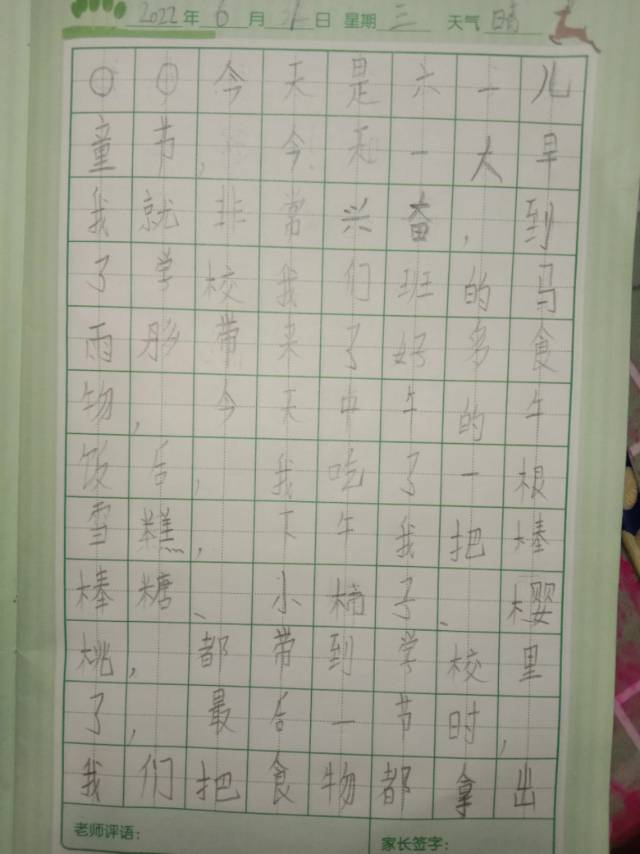 2022年6月1日 星期三 天气 晴
今天是六一儿
童节,今天一大早
我就非常兴奋,到
了学校我们班的马
雨彤带来了好多食
物,今天中午的午
饭后,我吃了一根
雪糕,下午我把棒
棒糖、小柿子、樱
桃,都带到学校里
了,最后一节时,
我们把食物都拿出
老师评语:
家长签字: